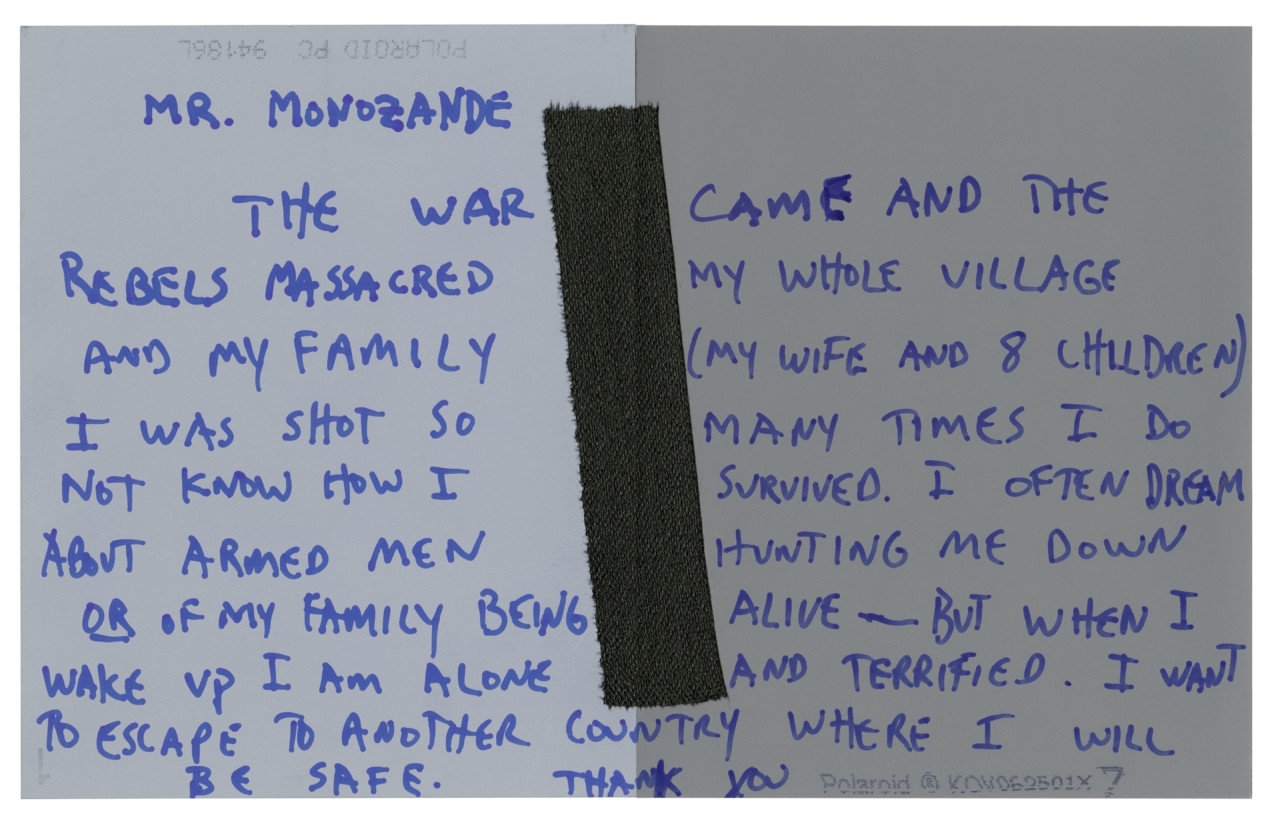 POLAROID PC 94186L
MR. MONOZANDE
THE WAR CAME AND THE
REBELS MASSACRED MY WHOLE VILLAGE
AND MY FAMILY (MY WIFE AND 8 CHILDREN)
I WAS SHOT SO MANY TIMES I DO
NOT KNOW HOW I SURVIVED. I OFTEN DREAM
ABOUT ARMED MEN HUNTING ME DOWN
OR OF MY FAMILY BEING ALIVE — BUT WHEN I
WAKE UP I AM ALONE AND TERRIFIED. I WANT
TO ESCAPE TO ANOTHER COUNTRY WHERE I WILL
BE SAFE. THANK YOU
1
Polaroid ® 7